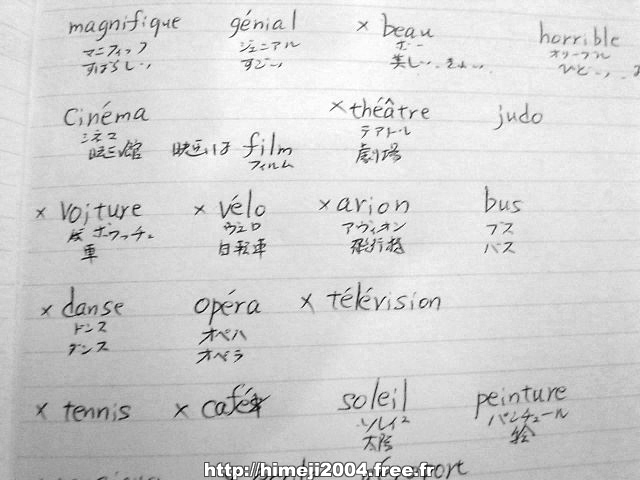 magnifique génial × beau horrible
マニフィック ジェニアル ボー オリーブル
すばらしい すごい 美しい、きれい、 ひどい、
cinéma × théâtre judo
シネマ テアトル
映画館 映画は film 劇場
フィルム
× voiture × vélo × arion bus
ボワッチュ ヴェロ アヴィオン ブス
車 自転車 飛行機 バス
× danse opéra × télévision
ドンス オペハ
ダンス オペラ
× tennis × café soleil peinture
ソレイユ パンチュール
太陽 絵
http://himeji2004.free.fr